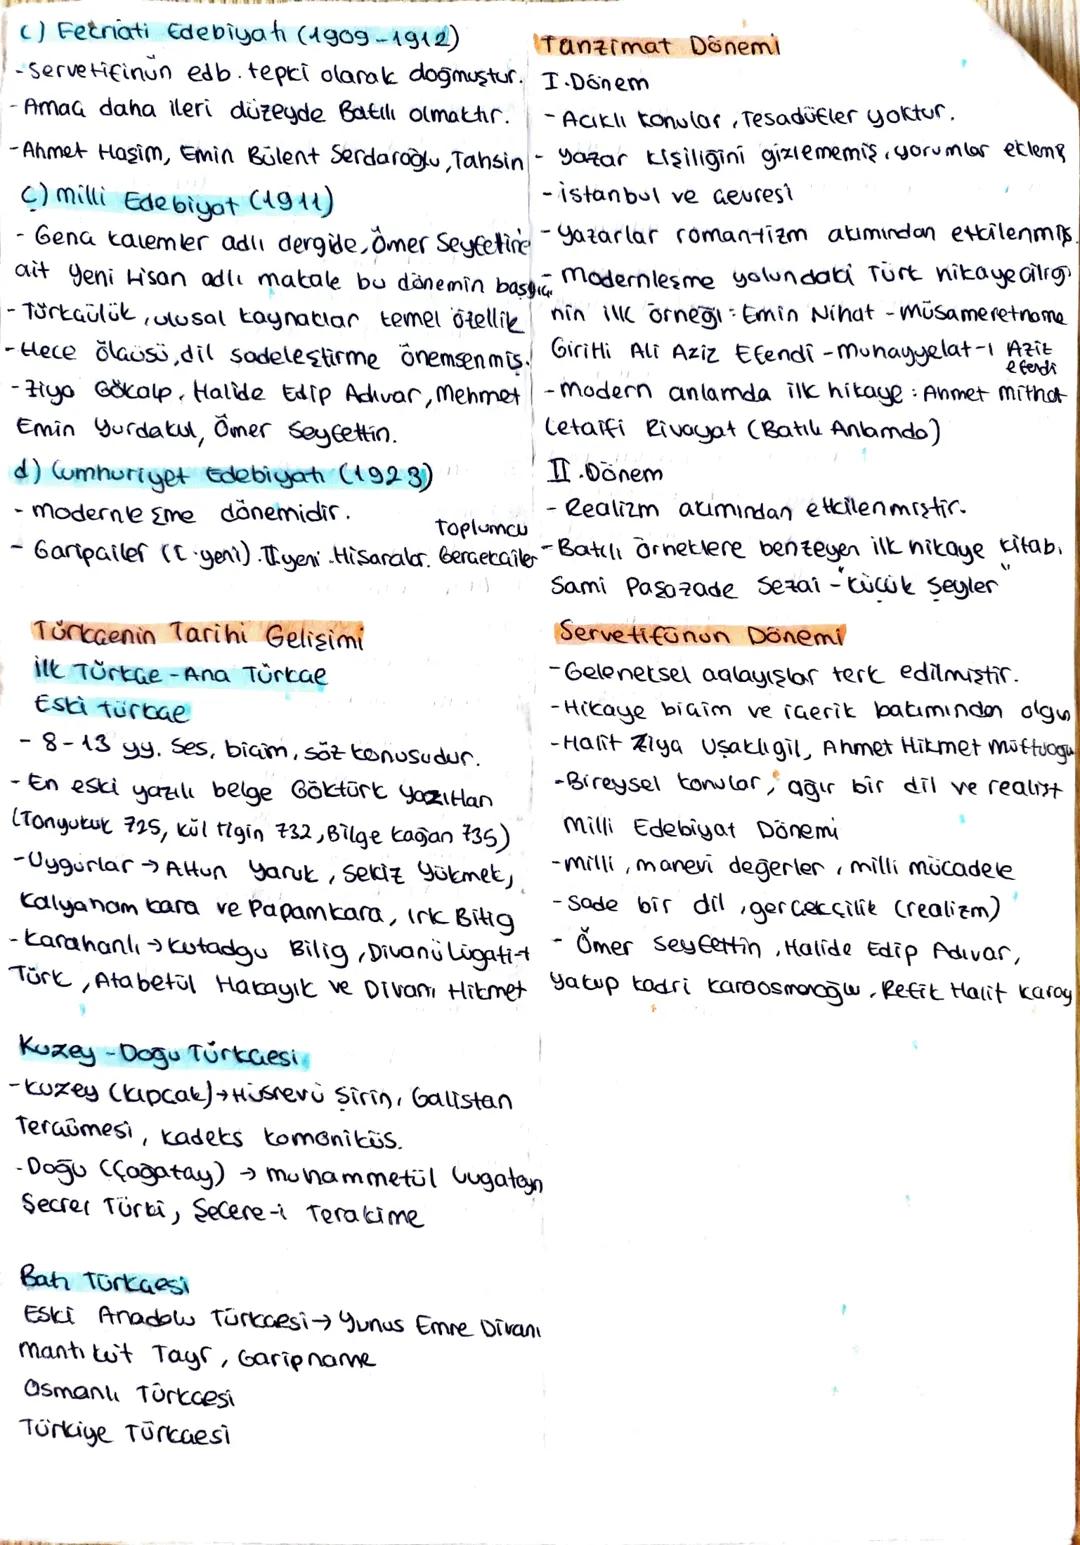 c) Fecriati Edebiyatı (1909-1912)
- Servetifinün edb. tepki olarak doğmuştur.
- Amaç daha ileri düzeyde Batılı olmaktır.
- Ahmet Haşim, Emin Bülent Serdaroğlu, Tahsin
ç) Milli Edebiyat (1911)
- Genç kalemler adlı dergide, Ömer Seyfettine
ait Yeni Lisan adlı makale bu dönemin başlıgı
- Türkçülük, ulusal kaynaklar temel özellik
- Hece ölçüsü, dil sadeleştirme önemsenmiş.
- Ziya Gökalp, Halide Edip Adıvar, Mehmet
Emin Yurdakul, Ömer Seyfettin.
d) Cumhuriyet Edebiyatı (1923)
- Modernleşme dönemidir.
Toplumcu
- Garipçiler (I. yeni). II yeni. Hisarcılar. Gerçekçiler
Türkçenin Tarihi Gelişimi
İlk Türkçe - Ana Türkçe
Eski türkçe
- 8-13 yy. Ses, biçim, söz konusudur.
- En eski yazılı belge Göktürk Yazıtları
(Tonyukuk 725, Kül tigin 732, Bilge kağan 735)
- Uygurlar → Altun Yaruk, Sekiz Yükmek,
Kalyanam kara ve Papamkara, Irk Bitig
- Karahanlı → Kutadgu Bilig, Divanü Lügati-t
Türk, Atabetül Hakayık ve Divanı Hikmet
Kuzey - Doğu Türkçesi
- Kuzey (kıpçak) → Hüsrevü Şirin, Galistan
Tercümesi, Kadeks Komanikus.
- Doğu (Çağatay) → muhammetül lugateyn
Secrer Türki, Şecere-i Terakime
Batı Türkçesi
Eski Anadolu Türkçesi → Yunus Emre Divanı
Mantı kut Tayr, Garipname
Osmanlı Türkçesi
Türkiye Türkçesi
Tanzimat Dönemi
I. Dönem
- Acıklı konular, Tesadüfler yoktur.
- Yazar kişiliğini gizlememiş, yorumlar eklemiş
- İstanbul ve çevresi
- Yazarlar romantizm akımından etkilenmiş.
- Modernleşme yolundaki Türk hikayeciliği
nin ilk örneği: Emin Nihat - Müsameretname
Giritli Ali Aziz Efendi - Muhayyelat-ı Aziz
efendi
- Modern anlamda ilk hikaye: Ahmet Mithat
Letaifi Rivayat (Batılı Anlamda)
II. Dönem
- Realizm akımından etkilenmiştir.
- Batılı örneklere benzeyen ilk hikaye kitabı
Sami Paşazade Sezai - "Küçük Şeyler"
Servetifünun Dönemi
- Geleneksel anlayışlar terk edilmiştir.
- Hikaye biçim ve içerik bakımından olgun
- Halit Ziya Uşaklıgil, Ahmet Hikmet Müftüoğu
- Bireysel konular, ağır bir dil ve realist
Milli Edebiyat Dönemi
- Milli, manevi değerler, milli mücadele
- Sade bir dil, gerçekçilik (realizm)
- Ömer Seyfettin, Halide Edip Adıvar,
Yakup Kadri Karaosmanoğlu, Refik Halit Karay